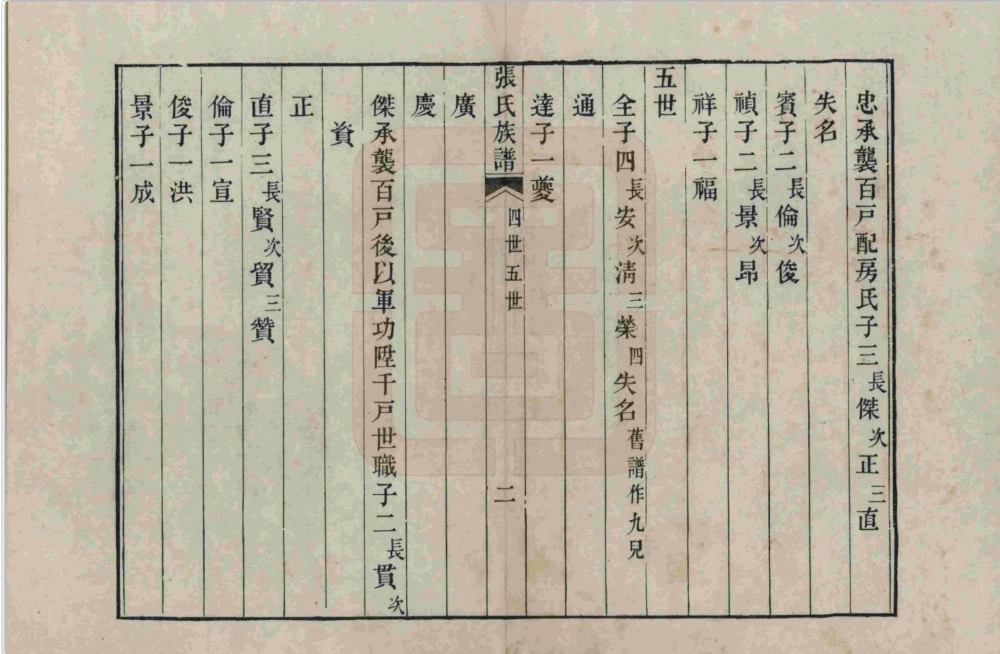 忠承襲百戸配房氏子三長傑次正三直
失名
賓子二長倫次俊
禎子二長景次昂
祥子一福
五世
全子四長安次清三榮四失名舊譜作九兒
通
達子一夔
張氏族譜 四世五世 二
廣
慶
傑承襲百戸後以軍功陞千戸世職子二長貫次
資
正
直子三長賢次貿三贊
倫子一宣
俊子一洪
景子一成